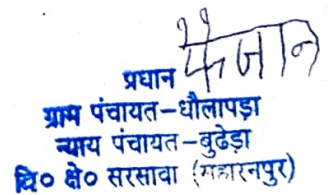 फैजान
प्रधान
ग्राम पंचायत-धौलापड़ा
न्याय पंचायत-बुढेड़ा
वि० क्षे० सरसावा (सहारनपुर)